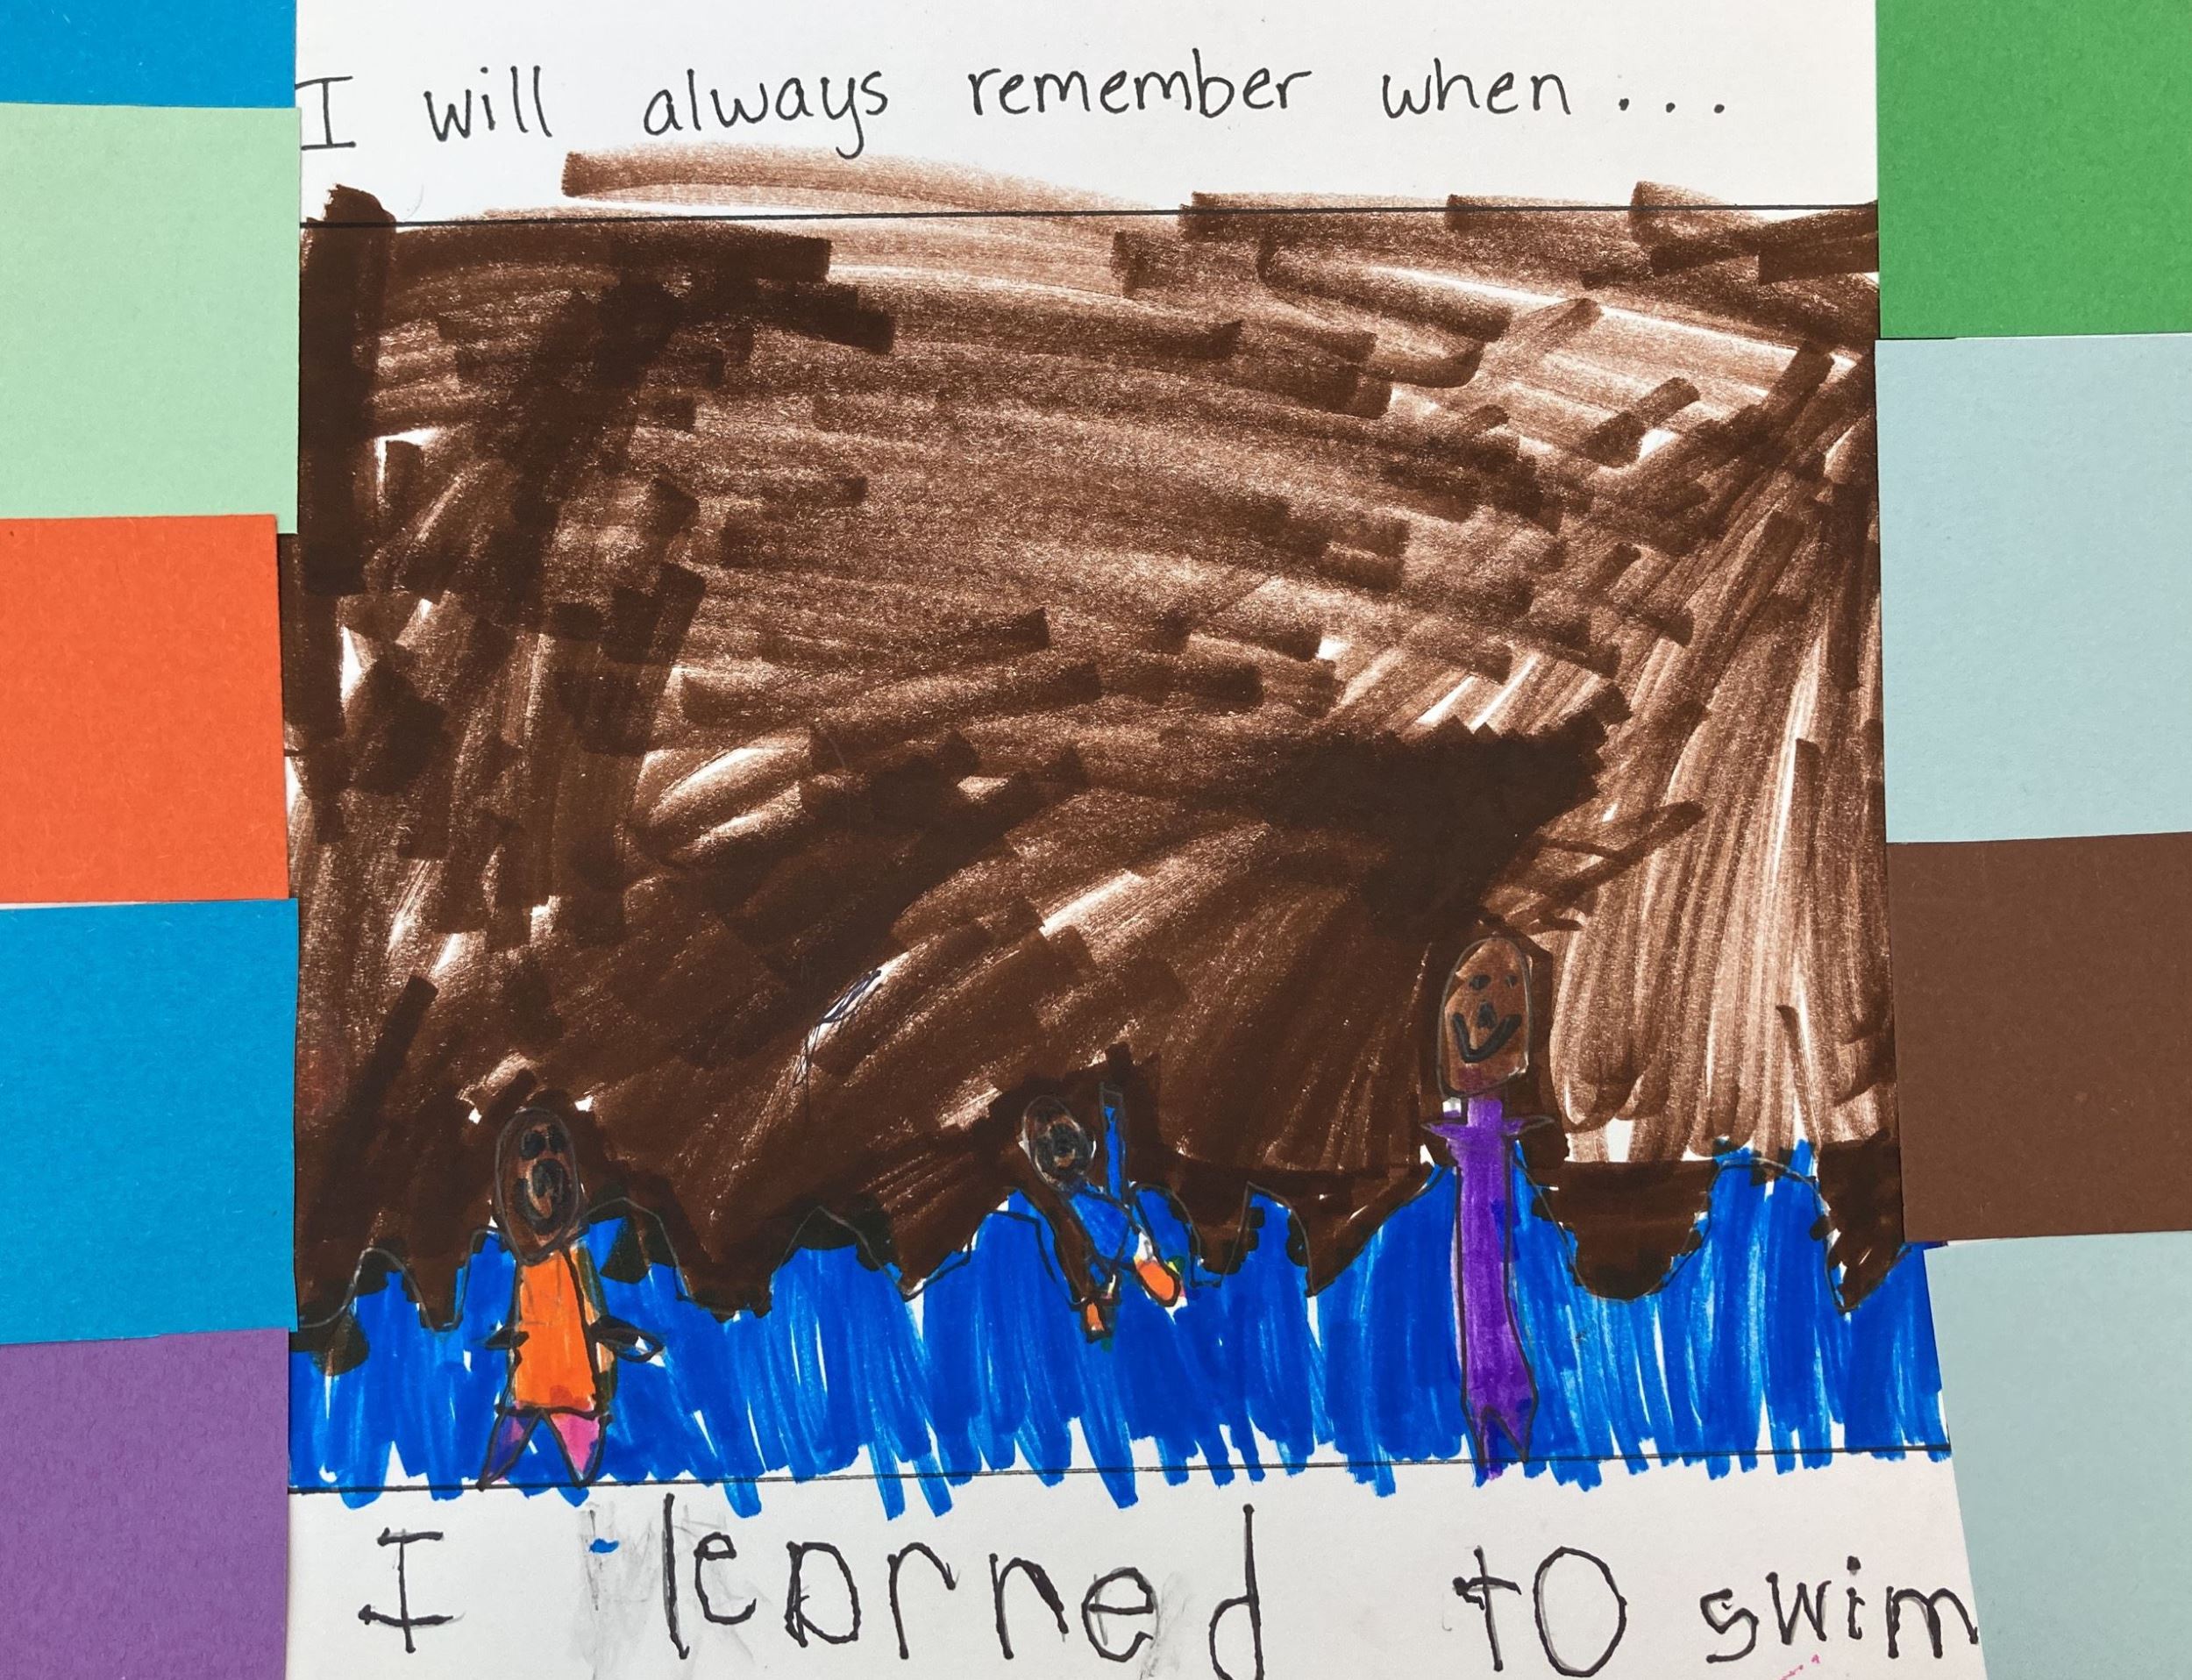 I will always remember when...
I learned to swim